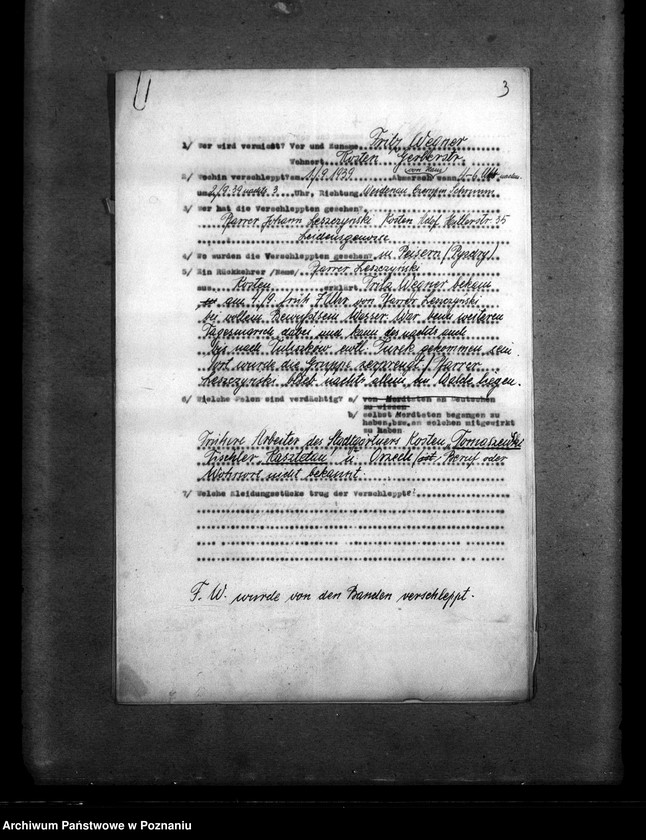 3
1/ Wer wird vermisst? Vor und Zuname Fritz Wegner
Wohnort Kosten Gerberstr.
2/ Wohin verschleppt? am 1/9.1939 (von Haus) Abmarsch wann 4-6 Uhr
und 2/9.39 nachts 3 Uhr, Richtung Schrimm
3/ Wer hat die Verschleppten gesehen?
Pfarrer Johann Leszczynski Kosten Adolf Hitlerstr. 35
Leidensgenosse
4/ Wo wurden die Verschleppten gesehen? in Peisern (Pyzdry)
5/ Ein Rückkehrer /Name/ Pfarrer Leszczynski
aus Kosten erklärt Fritz Wegner bekam
am 4./9. früh 7 Uhr von Pfarrer Leszczynski
bei vollem Bewußtsein Wasser. War beim weiteren
Tagesmarsch dabei und kann des nachts auch
bis nach Tuliszkow entl. Turek gekommen sein
dort wurde die Gruppe zersprengt. / Pfarrer
Leszczynski blieb nachts allein im Walde liegen.
6/ Welche Polen sind verdächtig? a/ von Mordtaten an Deutschen
zu wissen
b/ selbst Mordtaten begangen zu
haben, bzw. an solchen mitgewirkt
zu haben
Frühere Arbeiter des Stadtgärtners Kosten
Tischler u. Orzech Beruf oder
Wohnort nicht bekannt.
7/ Welche Kleidungsstücke trug der Verschleppte?
F. W. wurde von den Banden verschleppt.
Archiwum Państwowe w Poznaniu